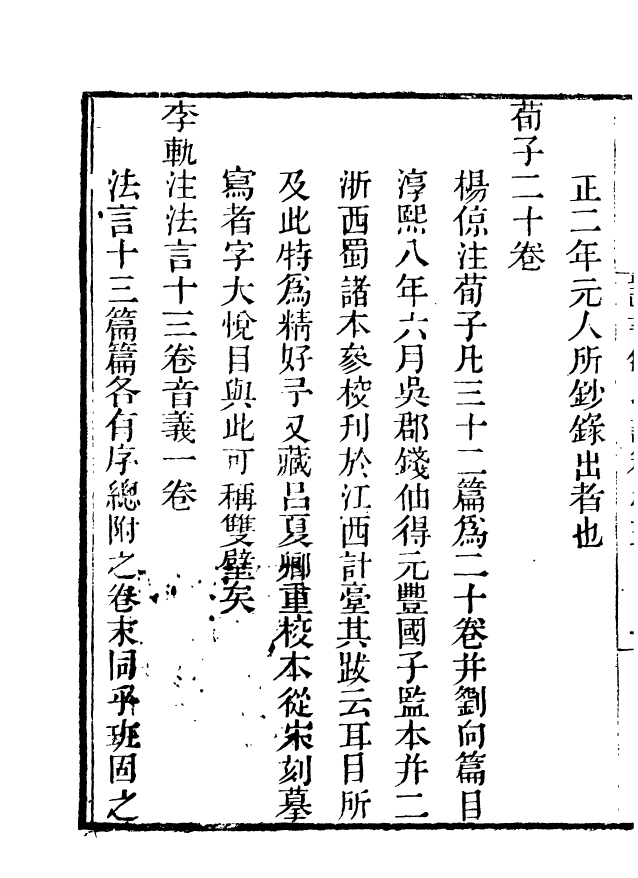 正二年元人所鈔錄出者也
荀子二十卷
楊倞注荀子凡三十二篇爲二十卷幷劉向篇目
淳熙八年六月吳郡錢佃得元豐國子監本幷二
浙西蜀諸本參校刊於江西計臺其跋云耳目所
及此特爲精好予又藏呂夏卿重校本從宋刻摹
寫者字大悅目與此可稱雙璧矣
李軌注法言十三卷音義一卷
法言十三篇篇各有序總附之卷末同乎班固之